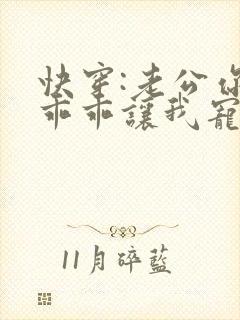 快穿:老公你
乖乖讓我寵
11月碎藍